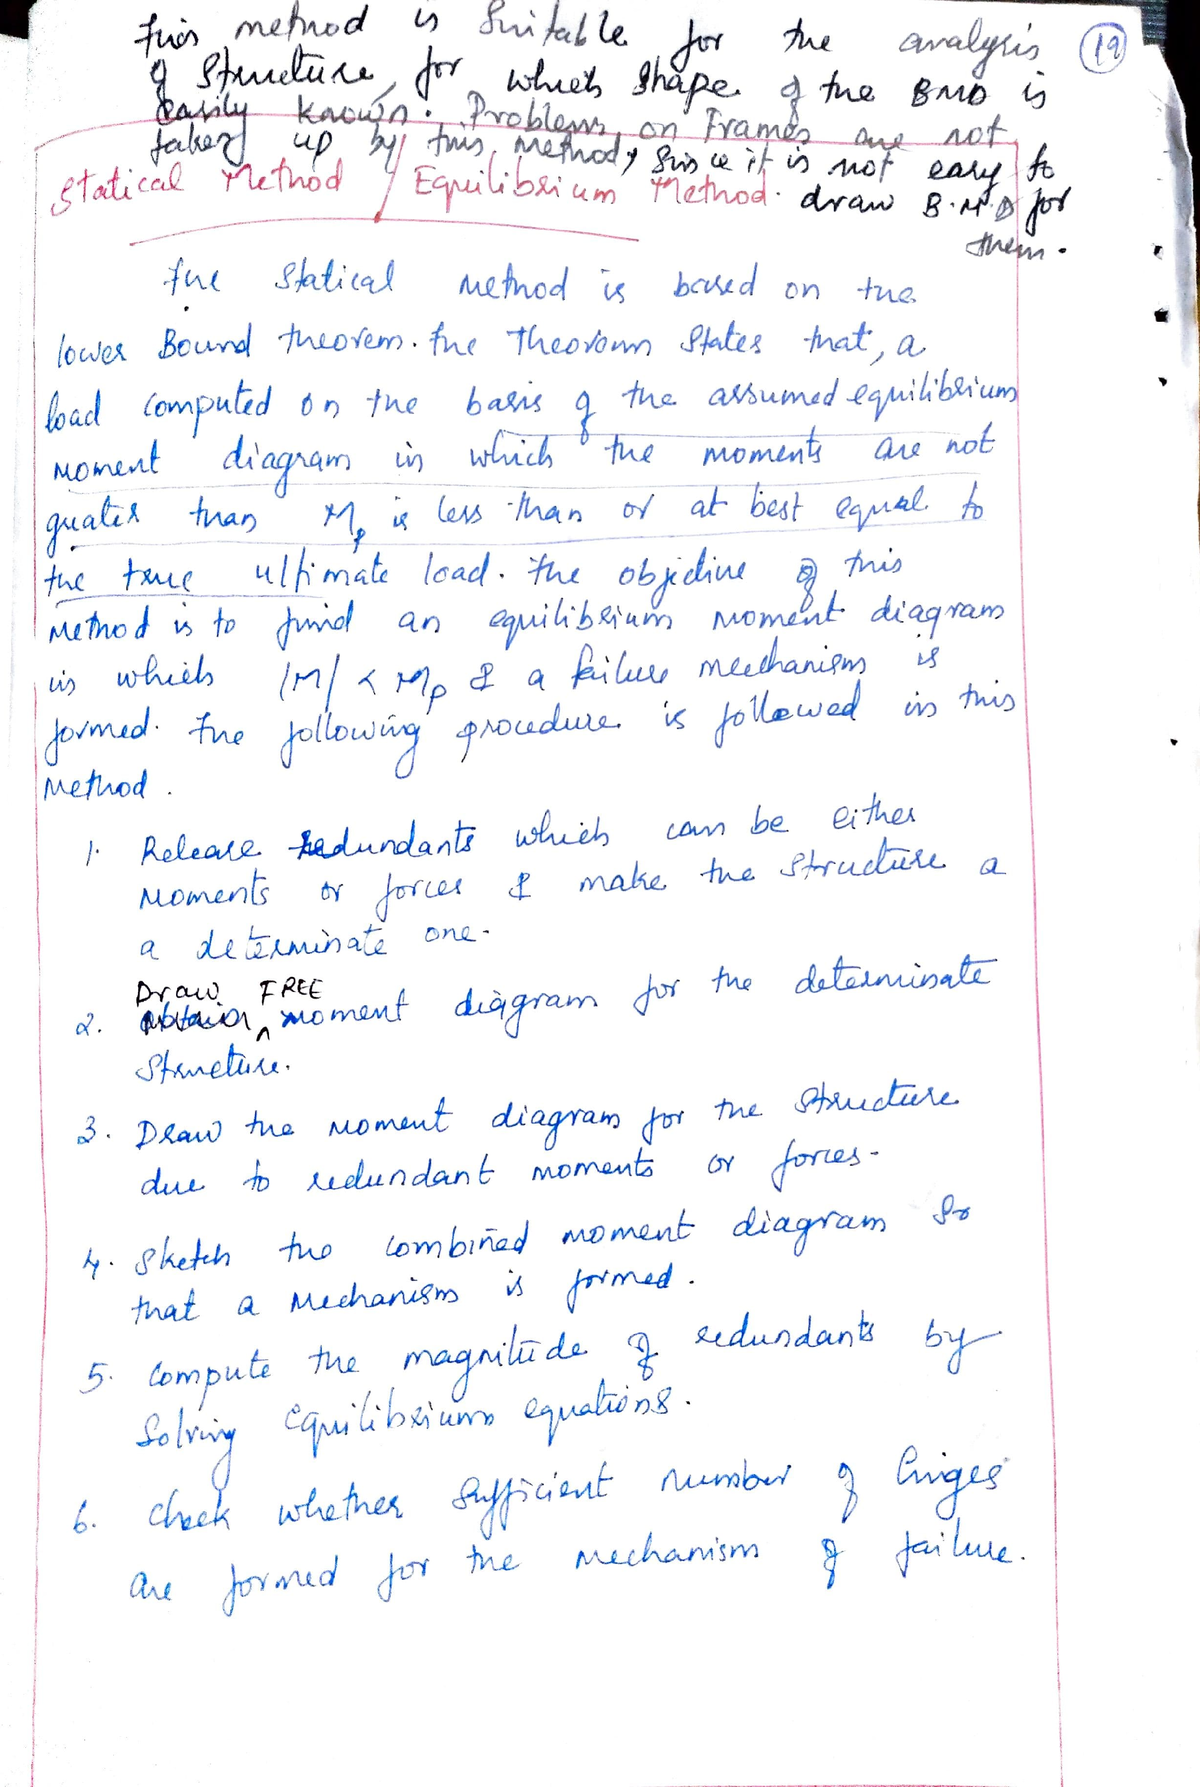 This method is suitable for the analysis
of structure, for which shape of the BMD is
easily known. Problems on Frames are not
taken up by this method, since it is not easy to
draw B.M.D for
them.
19
Statical Method / Equilibrium Method.
The Statical method is based on the
lower Bound theorem. The Theorem States that, a
load computed on the basis of the assumed equilibrium
moment diagram in which the moments are not
greater than Mp is less than or at best equal to
the true ultimate load. The objective of this
method is to find an equilibrium moment diagram
in which |M| < Mp & a failure mechanism is
formed. The following procedure is followed in this
method.
1. Release redundants which can be either
moments or forces & make the structure a
a determinate one.
Draw FREE
2. moment diagram for the determinate
Structure.
3. Draw the moment diagram for the structure
due to redundant moments or forces.
4. Sketch the combined moment diagram so
that a mechanism is formed.
5. Compute the magnitude of redundants by
Solving equilibrium equations.
6. Check whether sufficient number of hinges
are formed for the mechanism of failure.